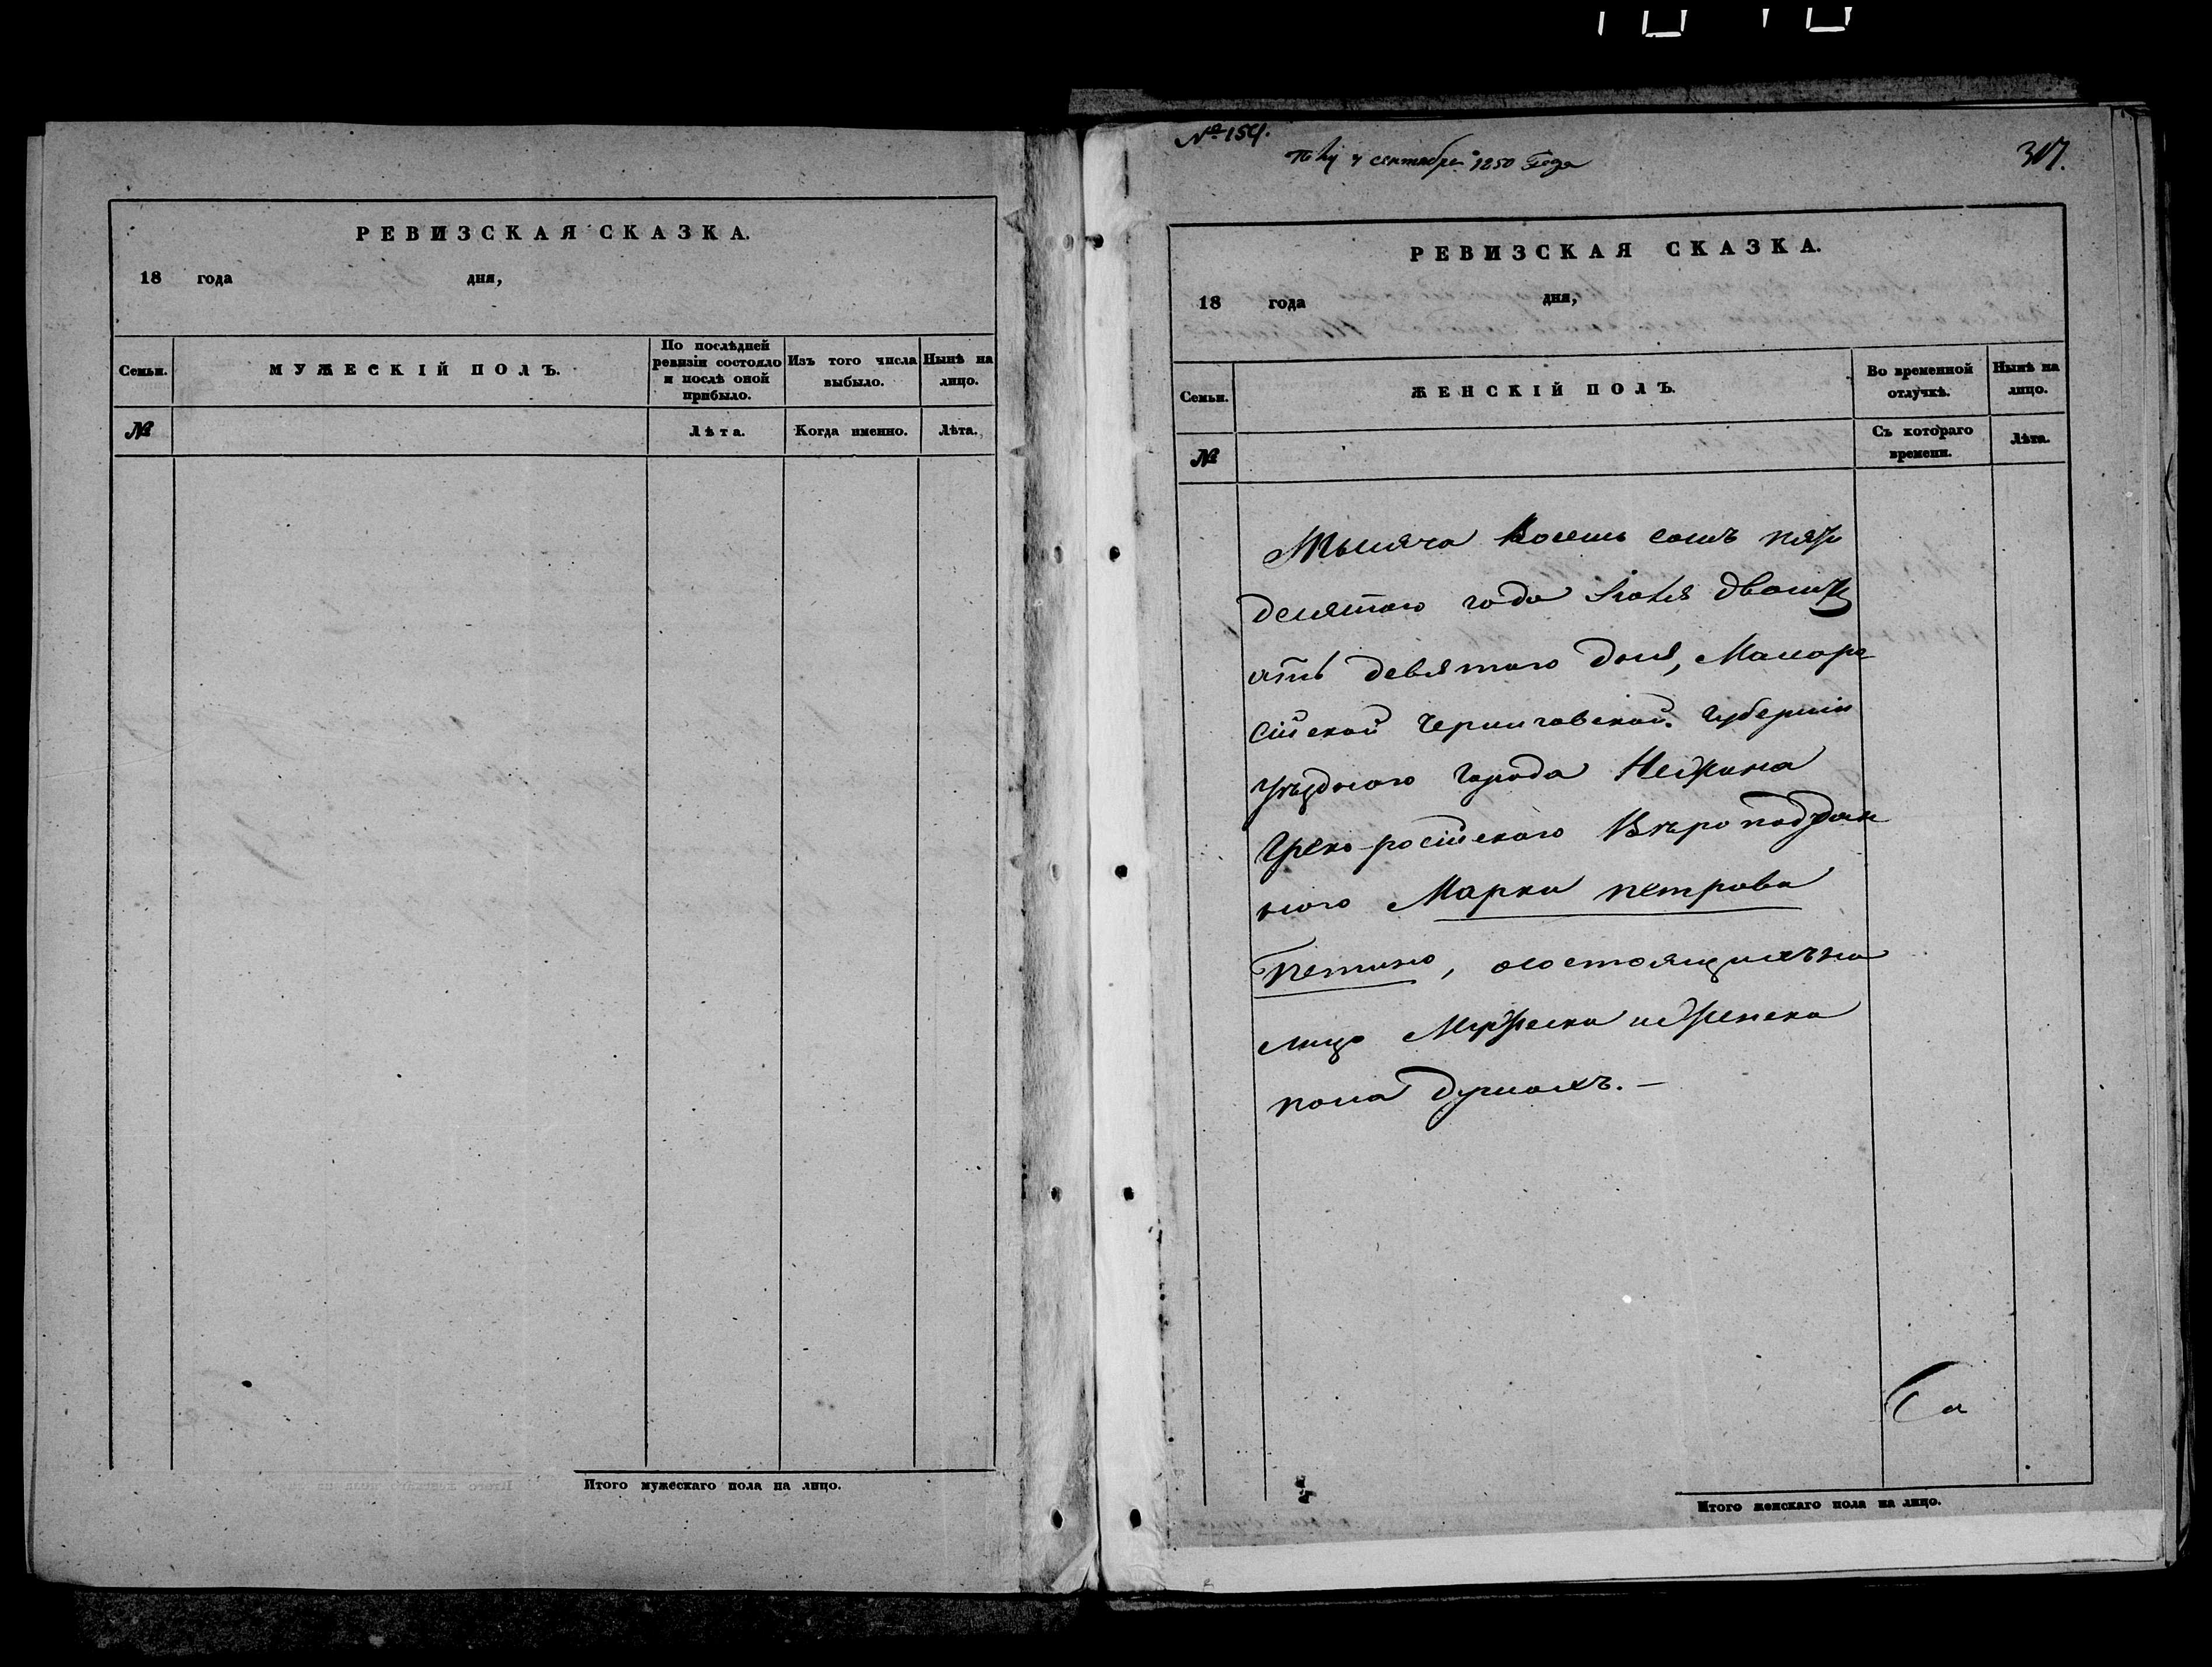 РЕВИЗСКАЯ СКАЗКА.
18 года дня,
Семьи.
МУЖЕСКІЙ ПОЛЪ.
По послѣдней
ревизіи состояло
и послѣ оной
прибыло.
Изъ того числа
выбыло.
Нынѣ на
лицо.
№
Лѣта.
Когда именно.
Лѣта.
Итого мужескаго пола на лицо.
№ 154.
4 сентября 1850 Года
307.
РЕВИЗСКАЯ СКАЗКА.
18 года дня,
Семьи.
ЖЕНСКІЙ ПОЛЪ.
Во временной
отлучкѣ.
Нынѣ на
лицо.
№
Съ котораго
времени.
Лѣта.
Тысяча Восемь сотъ пять
десятого года Іюля двать
ать девятого дня, Малоро
сійской Черниговской Губерніи
уѣздного Города Нежина
Греко-російского Вѣроподдан
ного Марка петрова
Петино, осостоящихъ на
лицо Мужеска иженска
пола душахъ. —
Са
Итого женскаго пола на лицо.